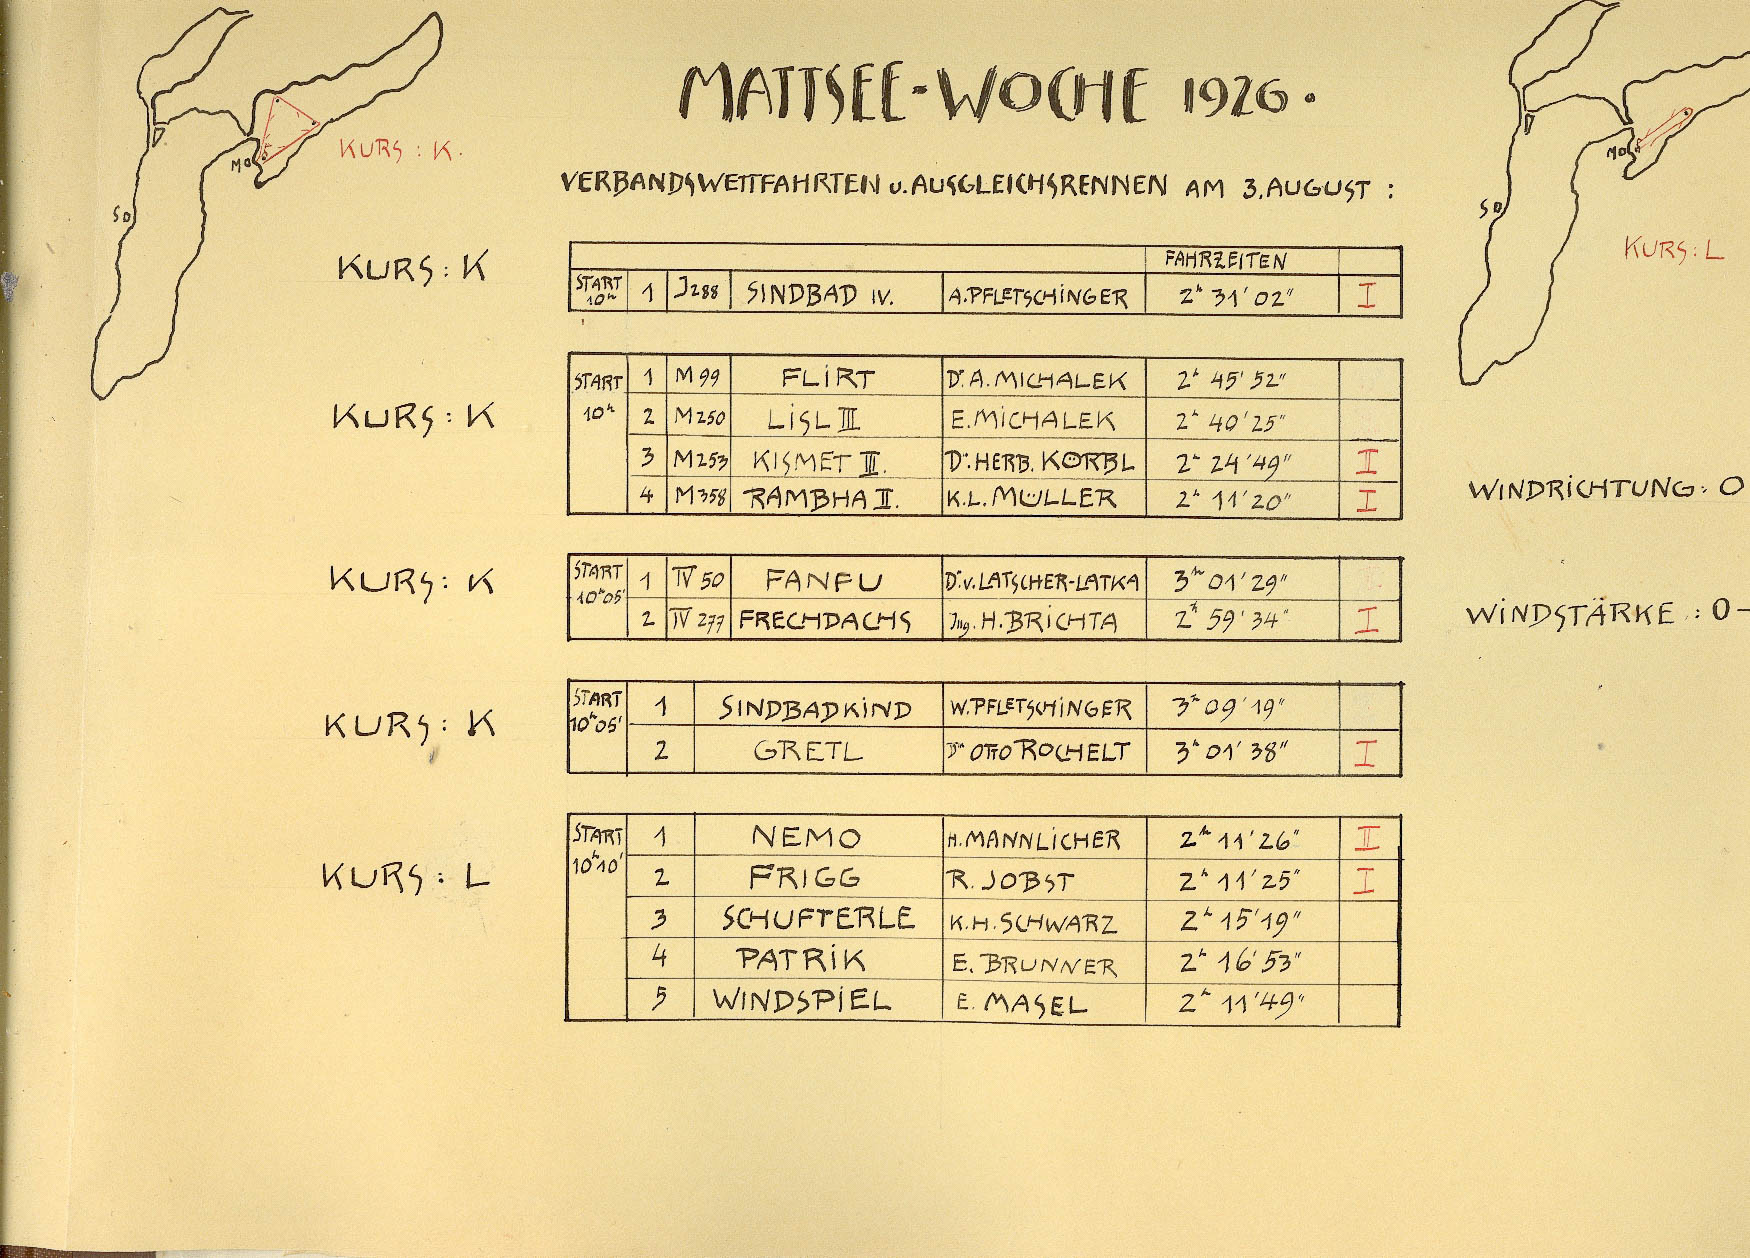 MATTSEE-WOCHE 1926.
KURS: K.
MO
SO
VERBANDSWETTFAHRTEN u. AUSGLEICHSRENNEN AM 3. AUGUST:
MO
SO
KURS: L
KURS: K
FAHRZEITEN
START 10h 1 J288 SINDBAD IV. A. PFLETSCHINGER 2h 31' 02" I
KURS: K
START 10h 1 M99 FLIRT Dr. A. MICHALEK 2h 45' 52"
2 M250 LISL III E. MICHALEK 2h 40' 25"
3 M253 KISMET II. Dr. HERB. KÖRBL 2h 24' 49" II
4 M358 RAMBHA II. K.L. MÜLLER 2h 11' 20" I
WINDRICHTUNG: O
KURS: K
START 10h05' 1 IV 50 FANFU Dr. v. LATSCHER-LATKA 3h 01' 29"
2 IV 277 FRECHDACHS Ing. H. BRICHTA 2h 59' 34" I
WINDSTÄRKE: 0-
KURS: K
START 10h05' 1 SINDBADKIND W. PFLETSCHINGER 3h 09' 19"
2 GRETL Dr OTTO ROCHELT 3h 01' 38" I
KURS: L
START 10h10' 1 NEMO H. MANNLICHER 2h 11' 26" II
2 FRIGG R. JOBST 2h 11' 25" I
3 SCHUFTERLE K.H. SCHWARZ 2h 15' 19"
4 PATRIK E. BRUNNER 2h 16' 53"
5 WINDSPIEL E. MASEL 2h 11' 49"